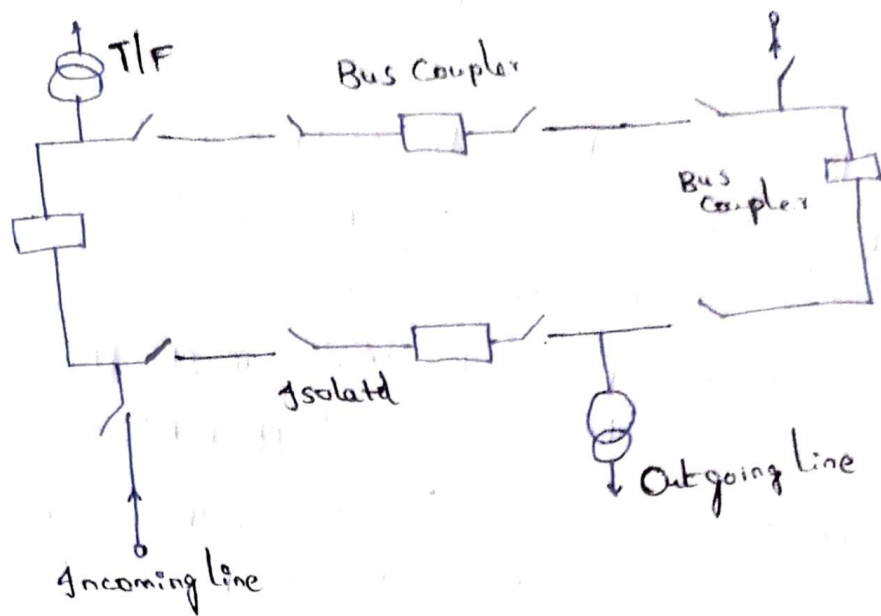 T/F
Bus Coupler
Bus
Coupler
Isolatd
Outgoing line
Incoming line